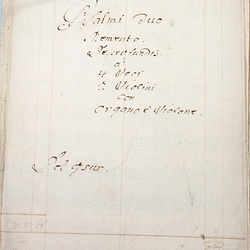 Psalmi Duo
Memento.
De profundis
à
4 Voci
2 Violini
con
Organo è Violone.
Del Gsur.